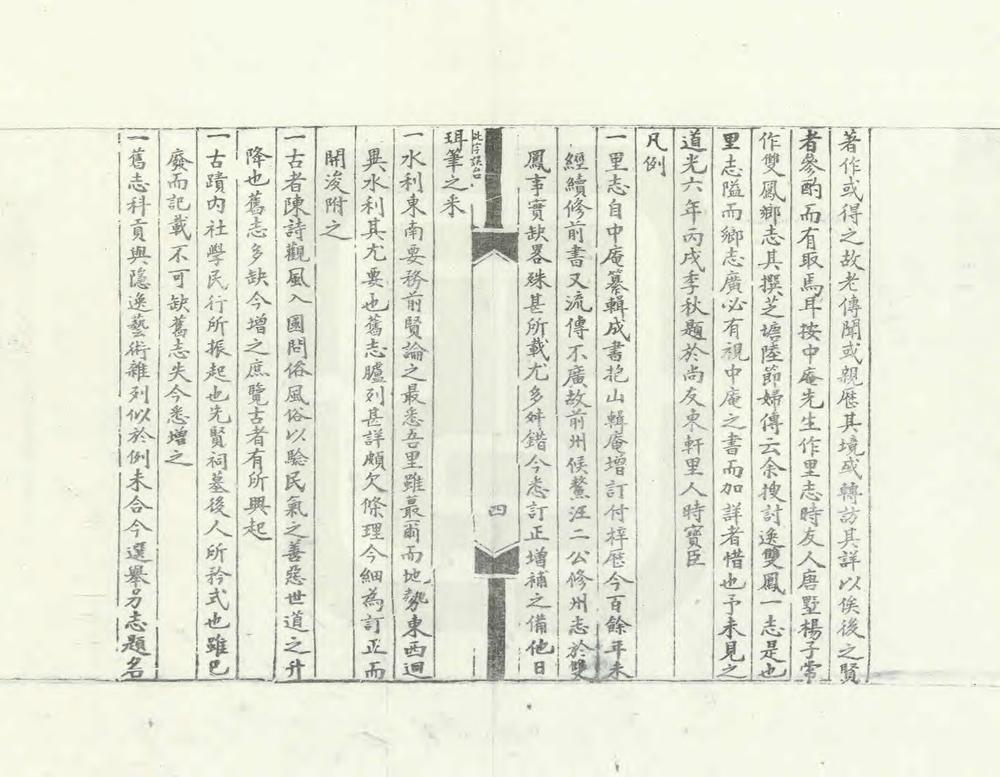 著作或得之故老傳聞或親歷其境或轉訪其詳以俟後之賢
者參酌而有取焉耳按中庵先生作里志時友人唐墅楊子常
作雙鳳鄉志其撰芝塘陸節婦傳云余搜討逸雙鳳一志是也
里志隘而鄉志廣必有視中庵之書而加詳者惜也予未見之
道光六年丙戌季秋題於尚友東軒里人時寶臣
凡例
一里志自中庵纂輯成書抱山輯庵增訂付梓歷今百餘年未
經續修前書又流傳不廣故前州侯鰲汪二公修州志於雙
鳳事實缺畧殊甚所載尤多舛錯今悉訂正增補之備他日
珥筆之釆
一水利東南要務前賢論之最悉吾里雖蕞爾而地勢東西迴
異水利其尤要也舊志臚列甚詳頗欠條理今細為訂正而
開浚附之
一古者陳詩觀風入國問俗風俗以驗民氣之善惡世道之升
降也舊志多缺今增之庶覽古者有所興起
一古蹟內社學民行所振起也先賢祠墓後人所矜式也雖已
廢而記載不可缺舊志失今悉增之
一舊志科貢與隱逸藝術雜列似於例未合今選舉另志題名
四